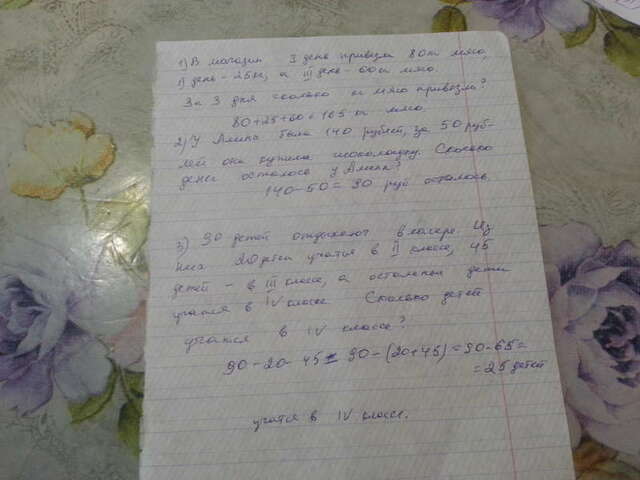 1) В магазин 3 день привезли 80кг мясо,
I) день - 25кг, а III день - 60кг мясо.
За 3 дня сколько кг мясо привезли?
80+25+60=165 кг мясо.
2) У Алина было 140 рублей, за 50 руб-
лей она купила шоколадку. Сколько
денег осталось у Алины?
140-50=90 руб осталось.
3) 90 детей отдыхают в лагере. Из
них 20 детей учатся в II классе, 45
детей - в III классе, а остальные дети
учатся в IV классе. Сколько детей
учатся в IV классе?
90-20-45=90-(20+45)=90-65=
=25 детей
учатся в IV классе.